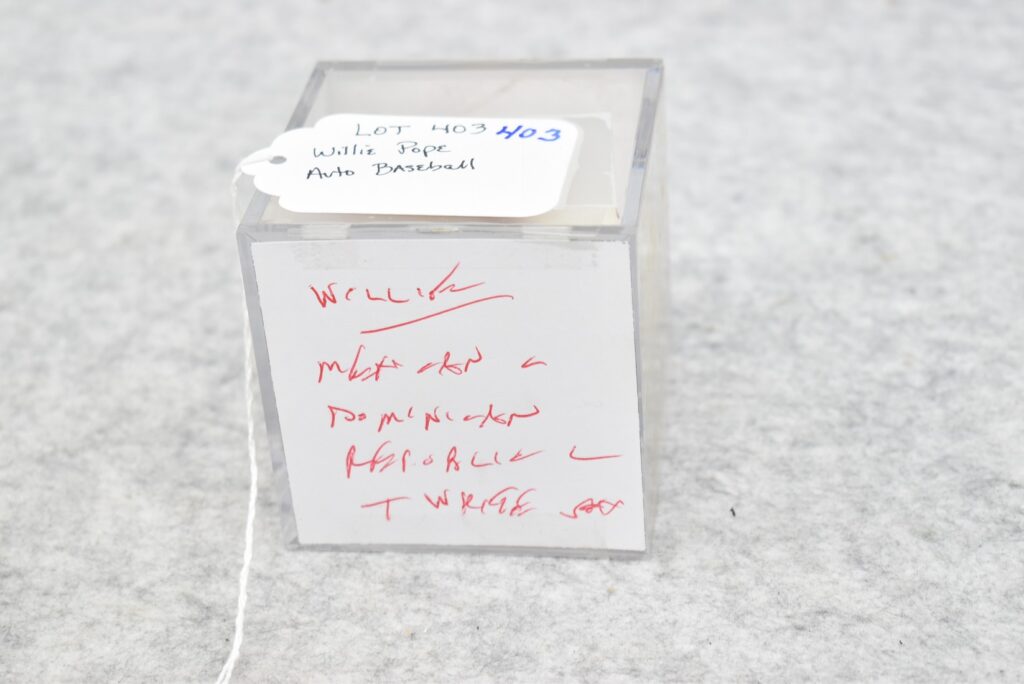 LOT 403 403
Willie Pope
Auto Baseball
WILLIE
MEXICAN
DOMINICAN
REPUBLIC
WRITE